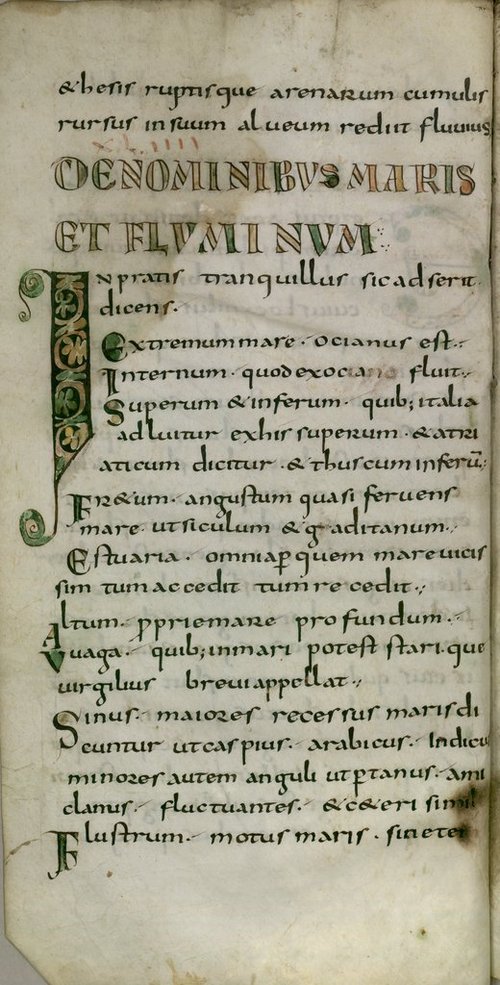 &hesis ruptisque arenarum cumulis
rursus insuum alveum rediit fluvius
DENOMINIBUS MARIS
ET FLUMINUM
INpratis tranquillus sicadserit
dicens.
Extremummare. ocianus est.
Internum. quodexociano fluit.
Superum &inferum. quib;italia
adluitur exhissuperum. &atri
aticum dicitur. &thuscuminferū.
Fr&um. angustum quasi fervens
mare. utsiculum &gaditanum.
Estuaria. omniaꝑquem marevicis
sim tumaccedit tumrecedit.
Altum. ꝓpriemare profundum.
Vvaga. quib;inmari potest stari.que
virgilius breviappellat.
Sinus. maiores recessus marisdi
cuntur utcaspius. arabicus. Indicu
minoresautem anguli utptanus. ami
clanus. fluctuantes. &c&eri simil
Flustrum. motus maris.